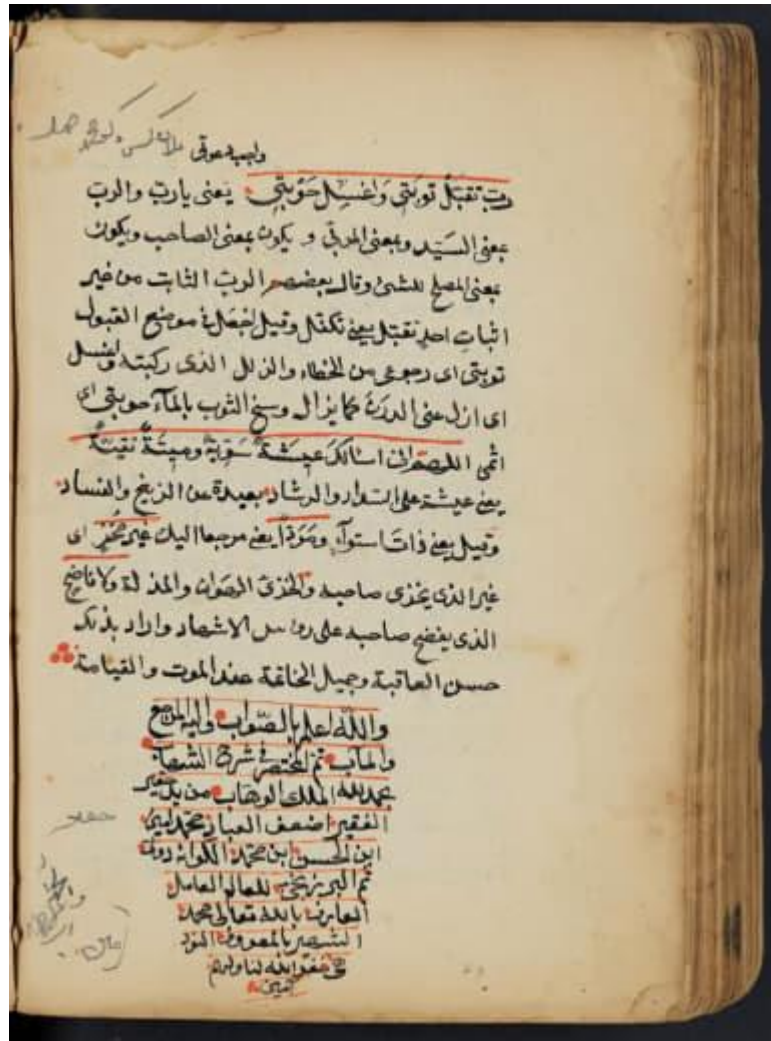 واجب دعوتي
رب تقبل توبتي واغسل حوبتي يعنى يارب والرب
بمعنى السيد وبمعنى المربي و يكون بمعنى الصاحب ويكون
بمعنى المصلح للشئ وقال بعضهم الرب الثابت من غير
اثبات احد تقبل يعنى تكفل وقيل اجعل في موضع القبول
توبتى اى رجوعى من الخطاء والزلل الذى ركبته واغسل
اى ازل عنى الدرن كما يزال وسخ الثوب بالمآء حوبتى اى
اثمى اللهم انى اسالك عيشة سوية وميتة نقية
يعنى عيشة على السداد والرشاد بعيدة من الزيغ والفساد
وقيل يعنى ذات استوآء ومردا يعنى مرجعا اليك غير مخز اى
غير الذى يخزى صاحبه والخزى الهوان والمذلة ولا فاضح
الذى يفضح صاحبه على روس الاشهاد واراد بذلك
حسن العاقبة وجميل الخاتمة عند الموت والقيامة
والله اعلم بالصواب واليه المرجع
والمآب تم المختصر في شرح
بحمد الله الملك الوهاب من يد
الفقير اضعف العباد محمد
ابن الحسن ابن محمد
ثم للعالم العامل
العارف بالله تعالى محمد
الشهير بالمعروف
غفر الله لنا ولهم
امين